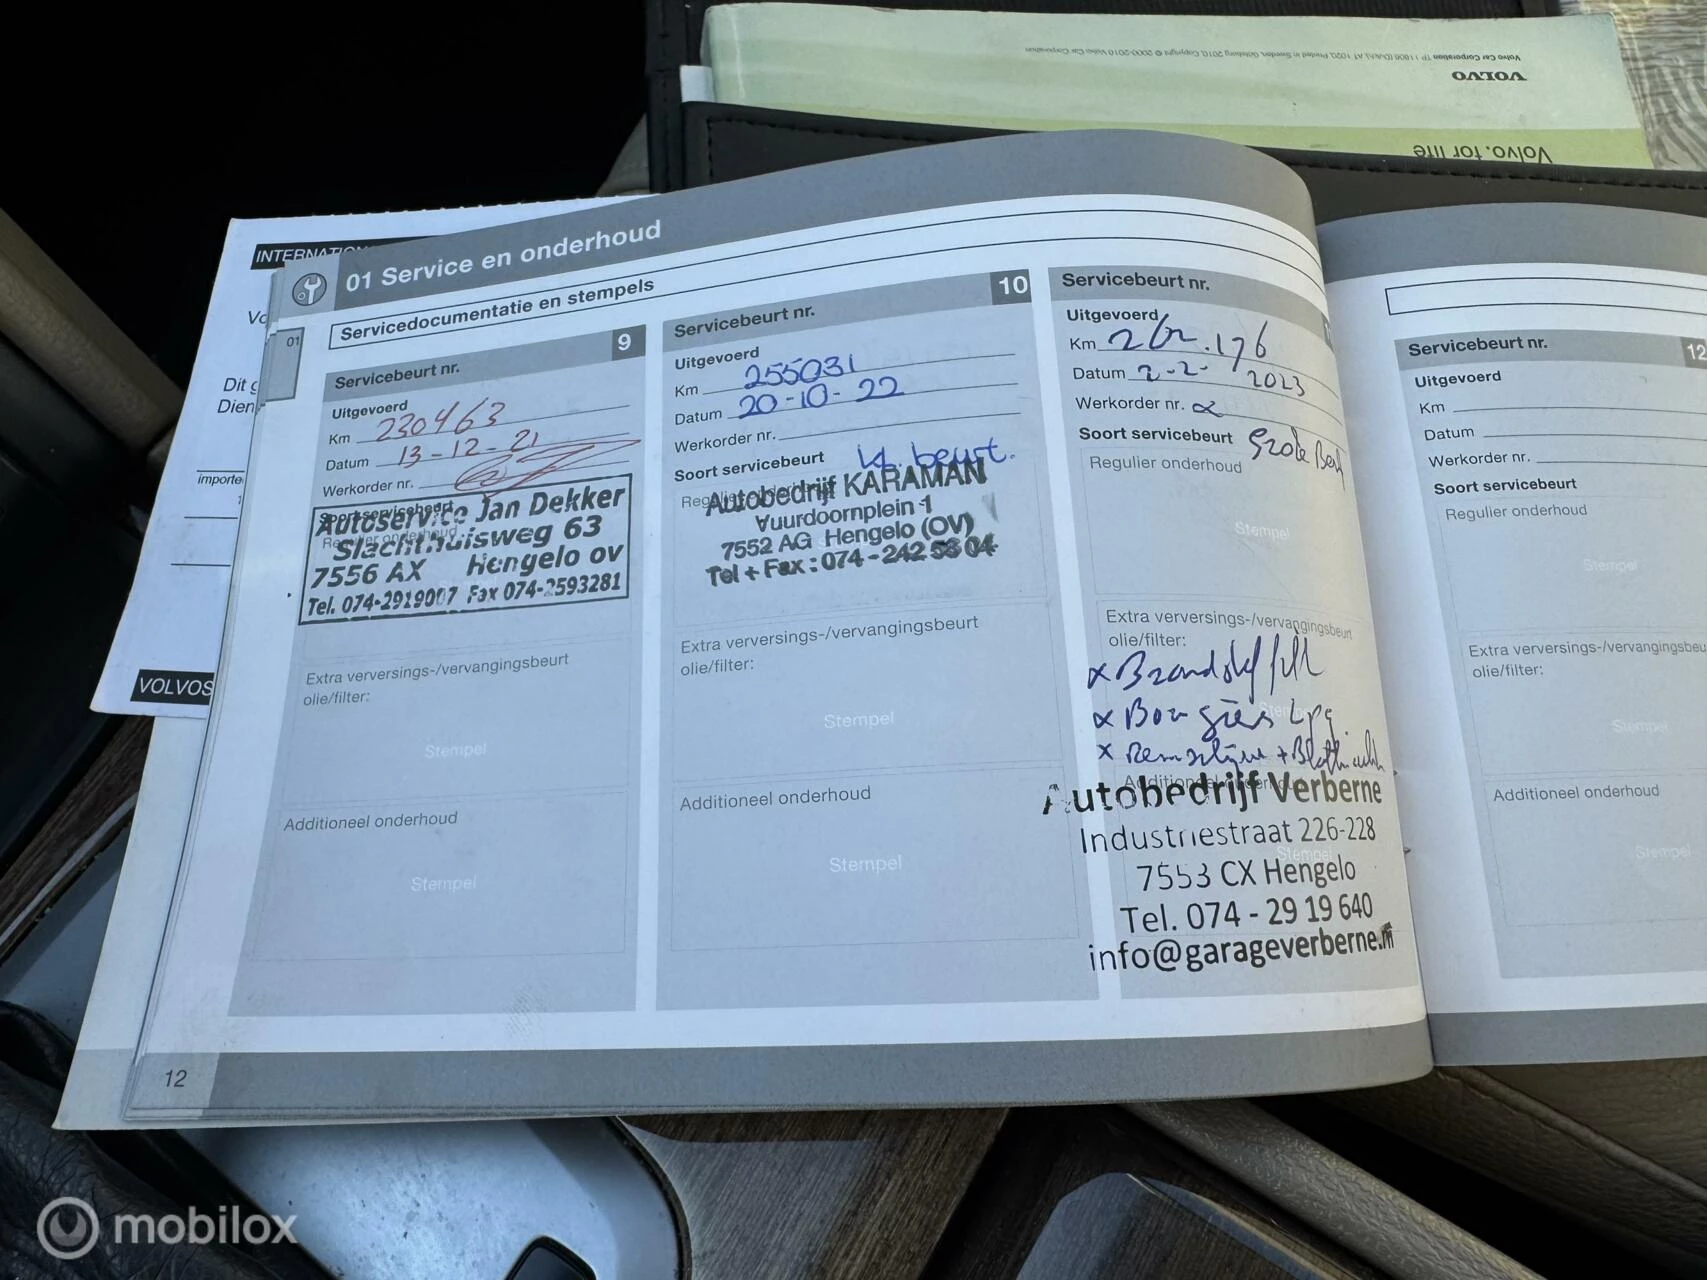 Volvo Car Corporation TP 11806 (Dutch), AT 1020, Printed in Sweden, Göteborg 2010, Copyright © 2000-2010 Volvo Car Corporation
VOLVO
Volvo. for life
INTERNATION
Vo
Dit g
Dien
importe
VOLVOS
01 Service en onderhoud
01
Servicedocumentatie en stempels
Servicebeurt nr. 9
Uitgevoerd
Km 230463
Datum 13-12-21
Werkorder nr.
Soort servicebeurt
Regulier onderhoud
Autoservice Jan Dekker
Slachthuisweg 63
7556 AX Hengelo ov
Tel. 074-2919007 Fax 074-2593281
Extra verversings-/vervangingsbeurt
olie/filter:
Stempel
Additioneel onderhoud
Stempel
Servicebeurt nr. 10
Uitgevoerd
Km 255031
Datum 20-10-22
Werkorder nr.
Soort servicebeurt kl. beurt.
Autobedrijf KARAMAN
Vuurdoornplein 1
7552 AG Hengelo (OV)
Tel + Fax : 074 - 242 58 04
Extra verversings-/vervangingsbeurt
olie/filter:
Stempel
Additioneel onderhoud
Stempel
Servicebeurt nr.
Uitgevoerd
Km
Datum 2-2-2023
Werkorder nr.
Soort servicebeurt Grote Beurt
Regulier onderhoud
Stempel
Extra verversings-/vervangingsbeurt
olie/filter:
x Bougies Lpg
Stempel
Additioneel onderhoud
Autobedrijf Verberne
Industriestraat 226-228
7553 CX Hengelo
Stempel
Tel. 074 - 29 19 640
info@garageverberne.nl
Servicebeurt nr. 12
Uitgevoerd
Km
Datum
Werkorder nr.
Soort servicebeurt
Regulier onderhoud
Stempel
Extra verversings-/vervangingsbeu
olie/filter:
Stempel
Additioneel onderhoud
Stempel
12
mobilox